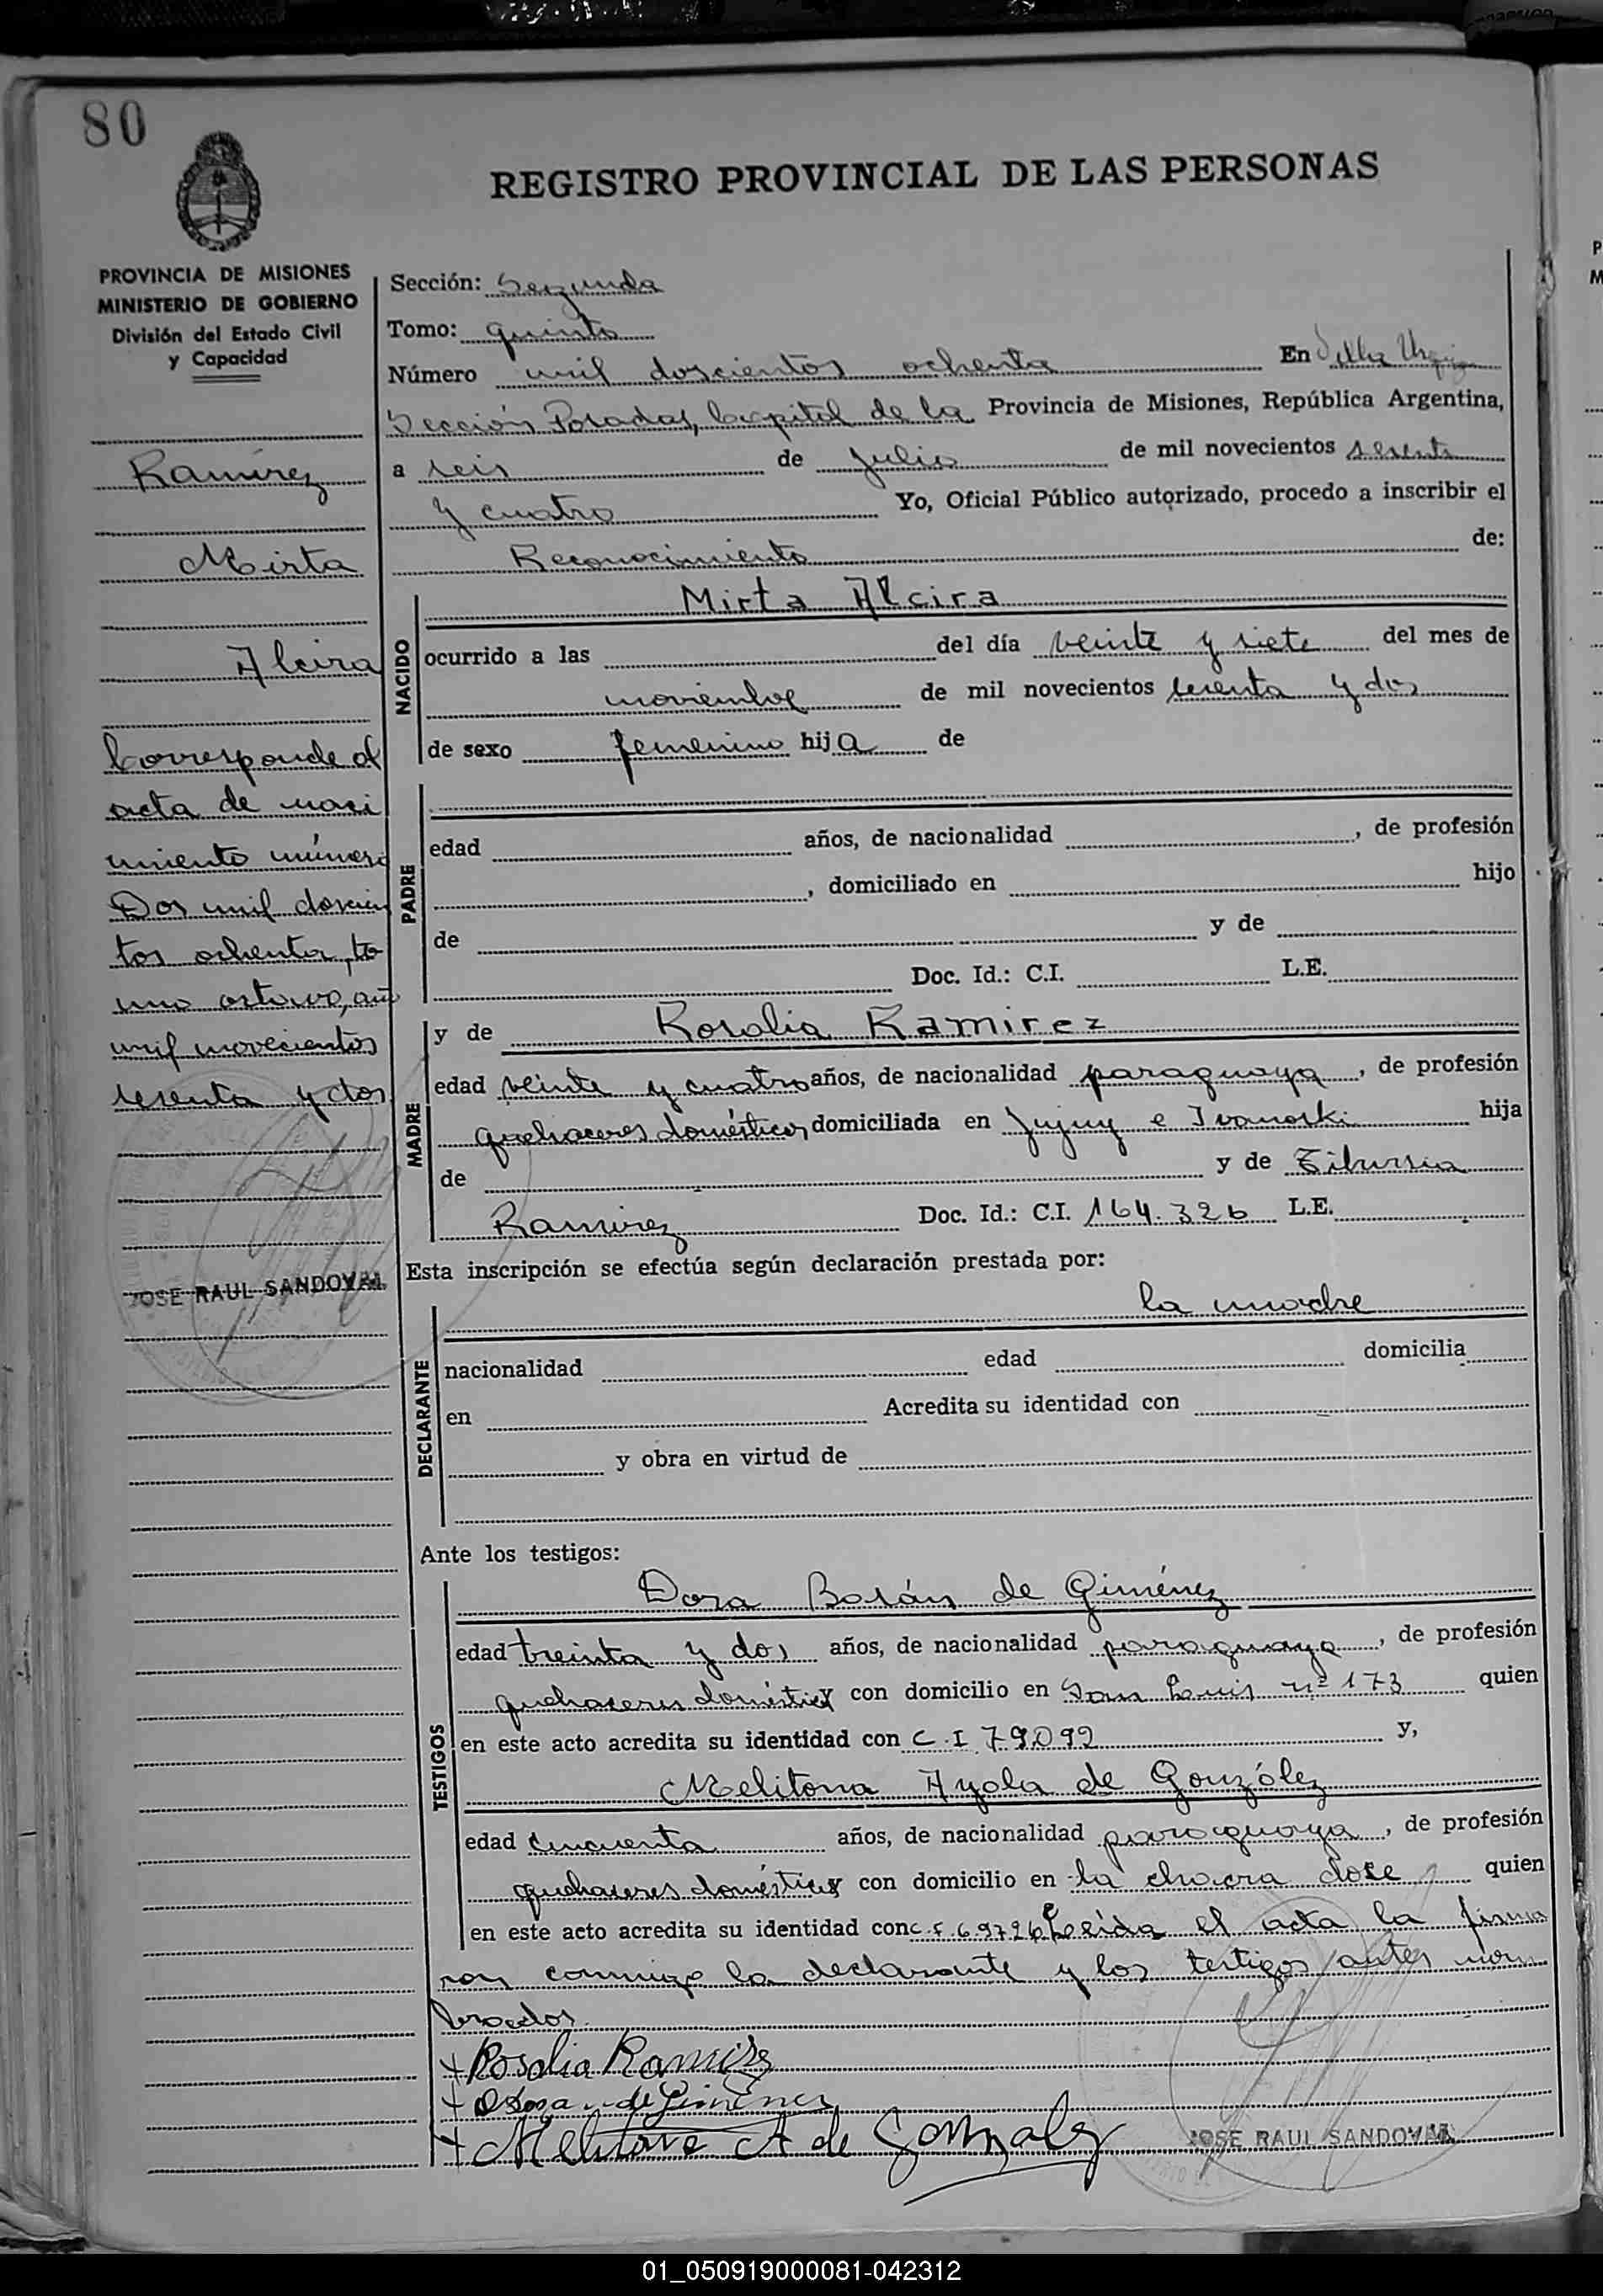 80
REGISTRO PROVINCIAL DE LAS PERSONAS
PROVINCIA DE MISIONES
MINISTERIO DE GOBIERNO
División del Estado Civil
y Capacidad
Ramírez
Mirta
Alcira
Corresponde al
acta de naci
miento número
Dos mil doscien
tos ochenta, to
mo octavo, año
mil novecientos
sesenta y dos
JOSE RAUL SANDOVAL
Sección: Segunda
Tomo: quinto
Número mil doscientos ochenta En Villa Urquiza
Sección Posadas, Capital de la Provincia de Misiones, República Argentina,
a seis de Julio de mil novecientos sesenta
y cuatro Yo, Oficial Público autorizado, procedo a inscribir el
Reconocimiento de:
NACIDO
Mirta Alcira
ocurrido a las del día veinte y siete del mes de
noviembre de mil novecientos sesenta y dos
de sexo femenino hija de
PADRE
edad años, de nacionalidad , de profesión
, domiciliado en hijo
de y de
Doc. Id.: C.I. L.E.
MADRE
y de Rosalia Ramirez
edad veinte y cuatro años, de nacionalidad paraguaya , de profesión
quehaceres domésticos domiciliada en Jujuy e Ivanoski hija
de y de Tibursia
Ramírez Doc. Id.: C.I. 164.326 L.E.
Esta inscripción se efectúa según declaración prestada por:
DECLARANTE
la madre
nacionalidad edad domicilia
en Acredita su identidad con
y obra en virtud de
Ante los testigos:
TESTIGOS
Dora Bosán de Giménez
edad treinta y dos años, de nacionalidad paraguaya , de profesión
quehaceres domésticos con domicilio en San Luis nº 173 quien
en este acto acredita su identidad con C.I 79.092 y,
Melitona Ayala de González
edad cincuenta años, de nacionalidad paraguaya , de profesión
quehaceres domésticos con domicilio en la chacra doce quien
en este acto acredita su identidad con 69726 Leída el acta la firma
ron conmigo la declarante y los testigos antes nom
brados.
Rosalia Ramirez
de Gimenez
Melitona A de Gonzalez
JOSE RAUL SANDOVAL
01_050919000081-042312